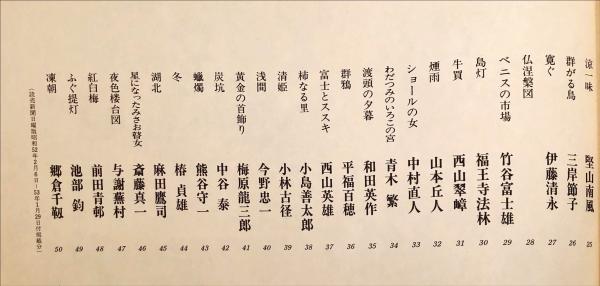 涼一味 堅山南風 25
群がる鳥 三岸節子 26
寛ぐ 伊藤清永 27
仏涅槃図 28
ベニスの市場 竹谷富士雄 29
島灯 福王寺法林 30
牛買 西山翠嶂 31
煙雨 山本丘人 32
ショールの女 中村直人 33
わだつみのいろこの宮 青木繁 34
渡頭の夕暮 和田英作 35
群鴉 平福百穂 36
富士とススキ 西山英雄 37
柿なる里 小島善太郎 38
清姫 小林古径 39
浅間 今野忠一 40
黄金の首飾り 梅原龍三郎 41
炭坑 中谷泰 42
蠟燭 熊谷守一 43
冬 椿貞雄 44
湖北 麻田鷹司 45
星になったみさお瞽女 斎藤真一 46
夜色楼台図 与謝蕪村 47
紅白梅 前田青邨 48
ふぐ提灯 池部鈞 49
凍朝 郷倉千靱 50
(読売新聞日曜版昭和52年2月6日〜53年1月29日付掲載分)